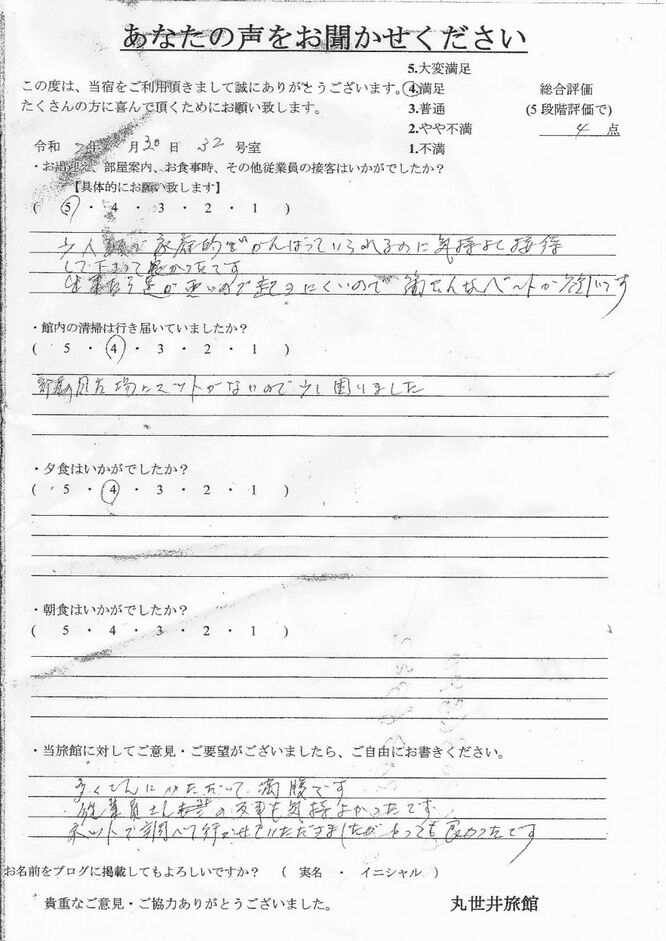 あなたの声をお聞かせください
この度は、当宿をご利用頂きまして誠にありがとうございます。
たくさんの方に喜んで頂くためにお願い致します。
5.大変満足
4.満足
3.普通
2.やや不満
1.不満
総合評価
(5段階評価で)
4 点
令和 7年 月30日 32 号室
・お出迎え、部屋案内、お食事時、その他従業員の接客はいかがでしたか？
【具体的にお願い致します】
( 5 ・ 4 ・ 3 ・ 2 ・ 1 )
少人数で家庭的でがんばっていられるのに気持よく接待
して下さって良かったです
足が悪いので起きにくいので 簡たんなベットが欲しいです
・館内の清掃は行き届いていましたか？
( 5 ・ 4 ・ 3 ・ 2 ・ 1 )
部屋の風呂場にマットがないので少し困りました
・夕食はいかがでしたか？
( 5 ・ 4 ・ 3 ・ 2 ・ 1 )
・朝食はいかがでしたか？
( 5 ・ 4 ・ 3 ・ 2 ・ 1 )
・当旅館に対してご意見・ご要望がございましたら、ご自由にお書きください。
いただいて満腹です
従業員さん の 気持よかったです
ネットで調べて行かせていただきましたがとっても良かったです
お名前をブログに掲載してもよろしいですか？ ( 実名 ・ イニシャル )
貴重なご意見・ご協力ありがとうございました。
丸世井旅館